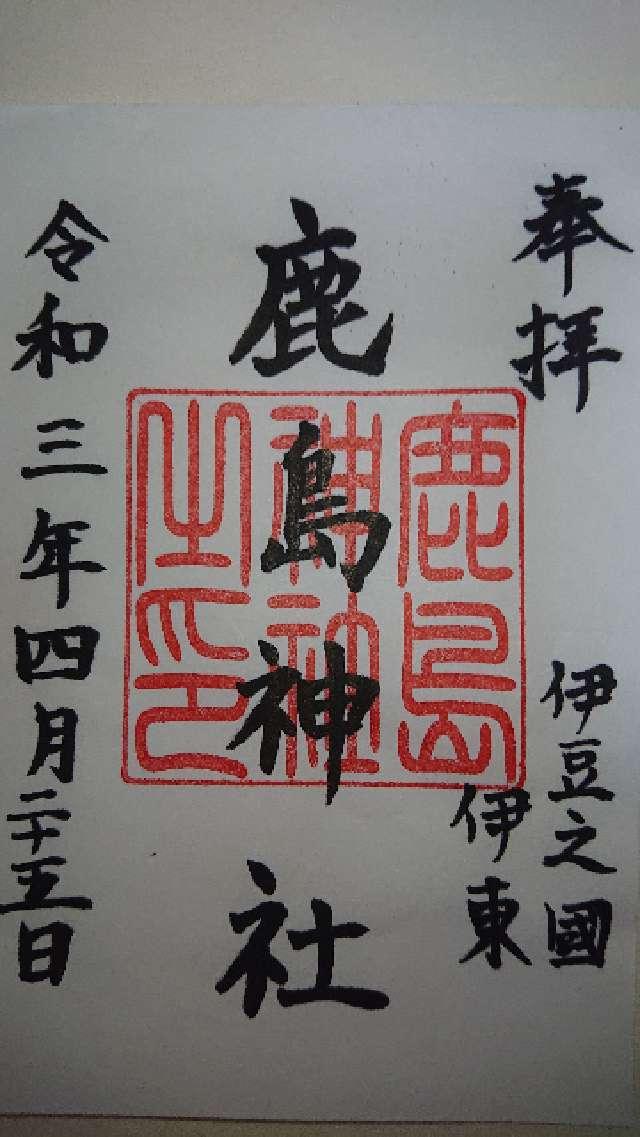 奉拝
伊豆之國
伊東
鹿島神社
鹿島
神社
之印
令和三年四月二十五日